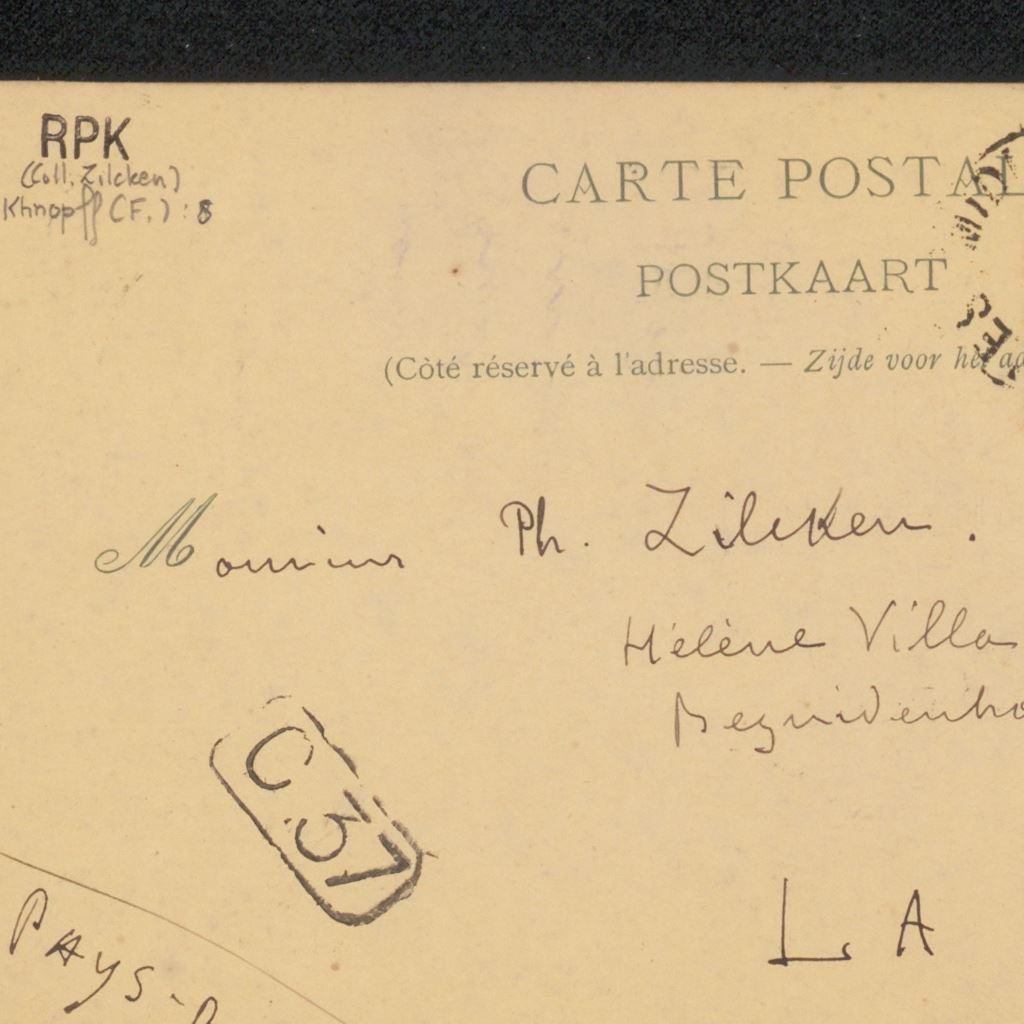 RPK
(Coll. Zilcken)
Khnopff (F.) : 8
CARTE POSTAL
POSTKAART
(Còté réservé à l'adresse. — Zijde voor het ad
Monsieur Ph. Zilcken.
Hélène Villa
Bezuidenho
C 37
LA
PAYS-B